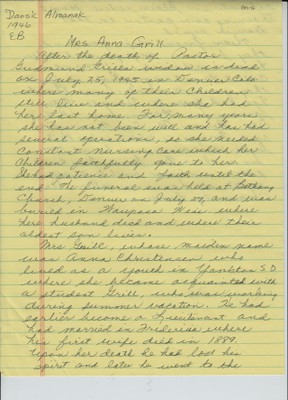 Dansk Almanak
1946
EB
Mrs Anna Grill
After the death of Pastor
Gudmund Grills widow is dead
on July 25, 1945 in Denver Colo
where many of their Children
still live and where she had
her last home. For many years
she has not been well and has had
several operations, so she needed
Constant Nursing Care which her
Children faithfully gave to her
patience and faith until the
end. The funeral was held at Bethany
Church, Denver on July 27, and was
buried in Waupaca Wis where
her husband died and where their
oldest son lives.
Mrs Grill, whose maiden name
was Anna Christensen who
lived as a youth in Yankton S.D.
where she became acquainted with
a student Grill, who was working
during summer vacation. He had
earlier become a Lieutenant and
had married in Fredericia where
his first wife died in 1889.
Upon her death he had lost his
spirit and later he went to the